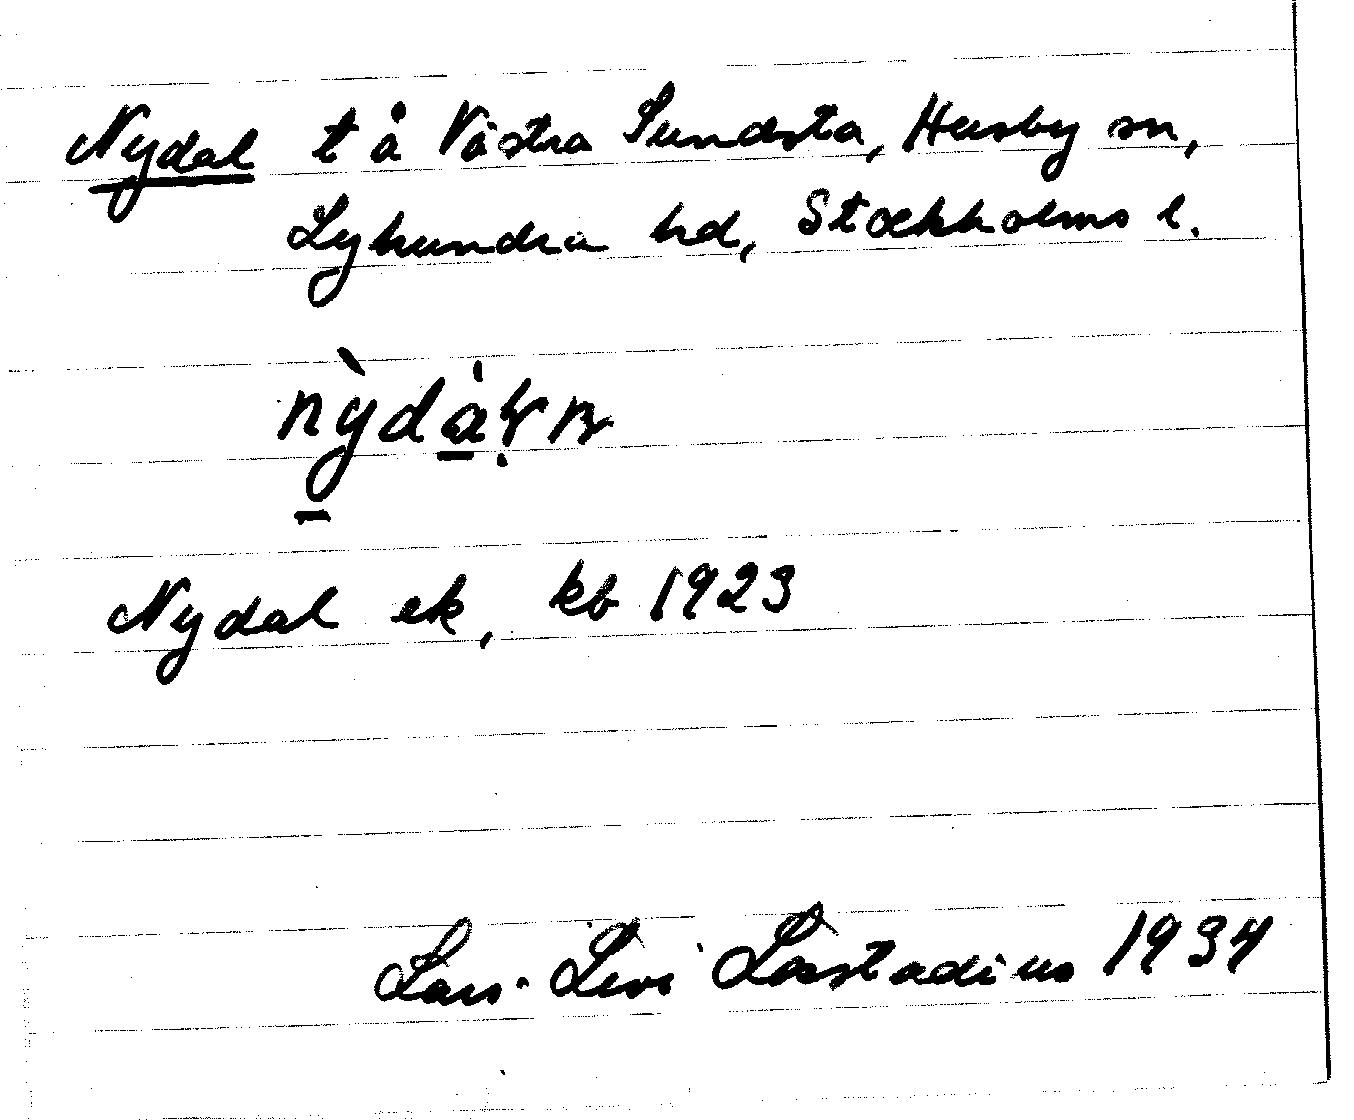 Nydal t å Västra Sundsta, Husby sn,
Lyhundra hd, Stockholms l.
Nydal ek, kb 1923
Lars-Levi Læstadius 1934